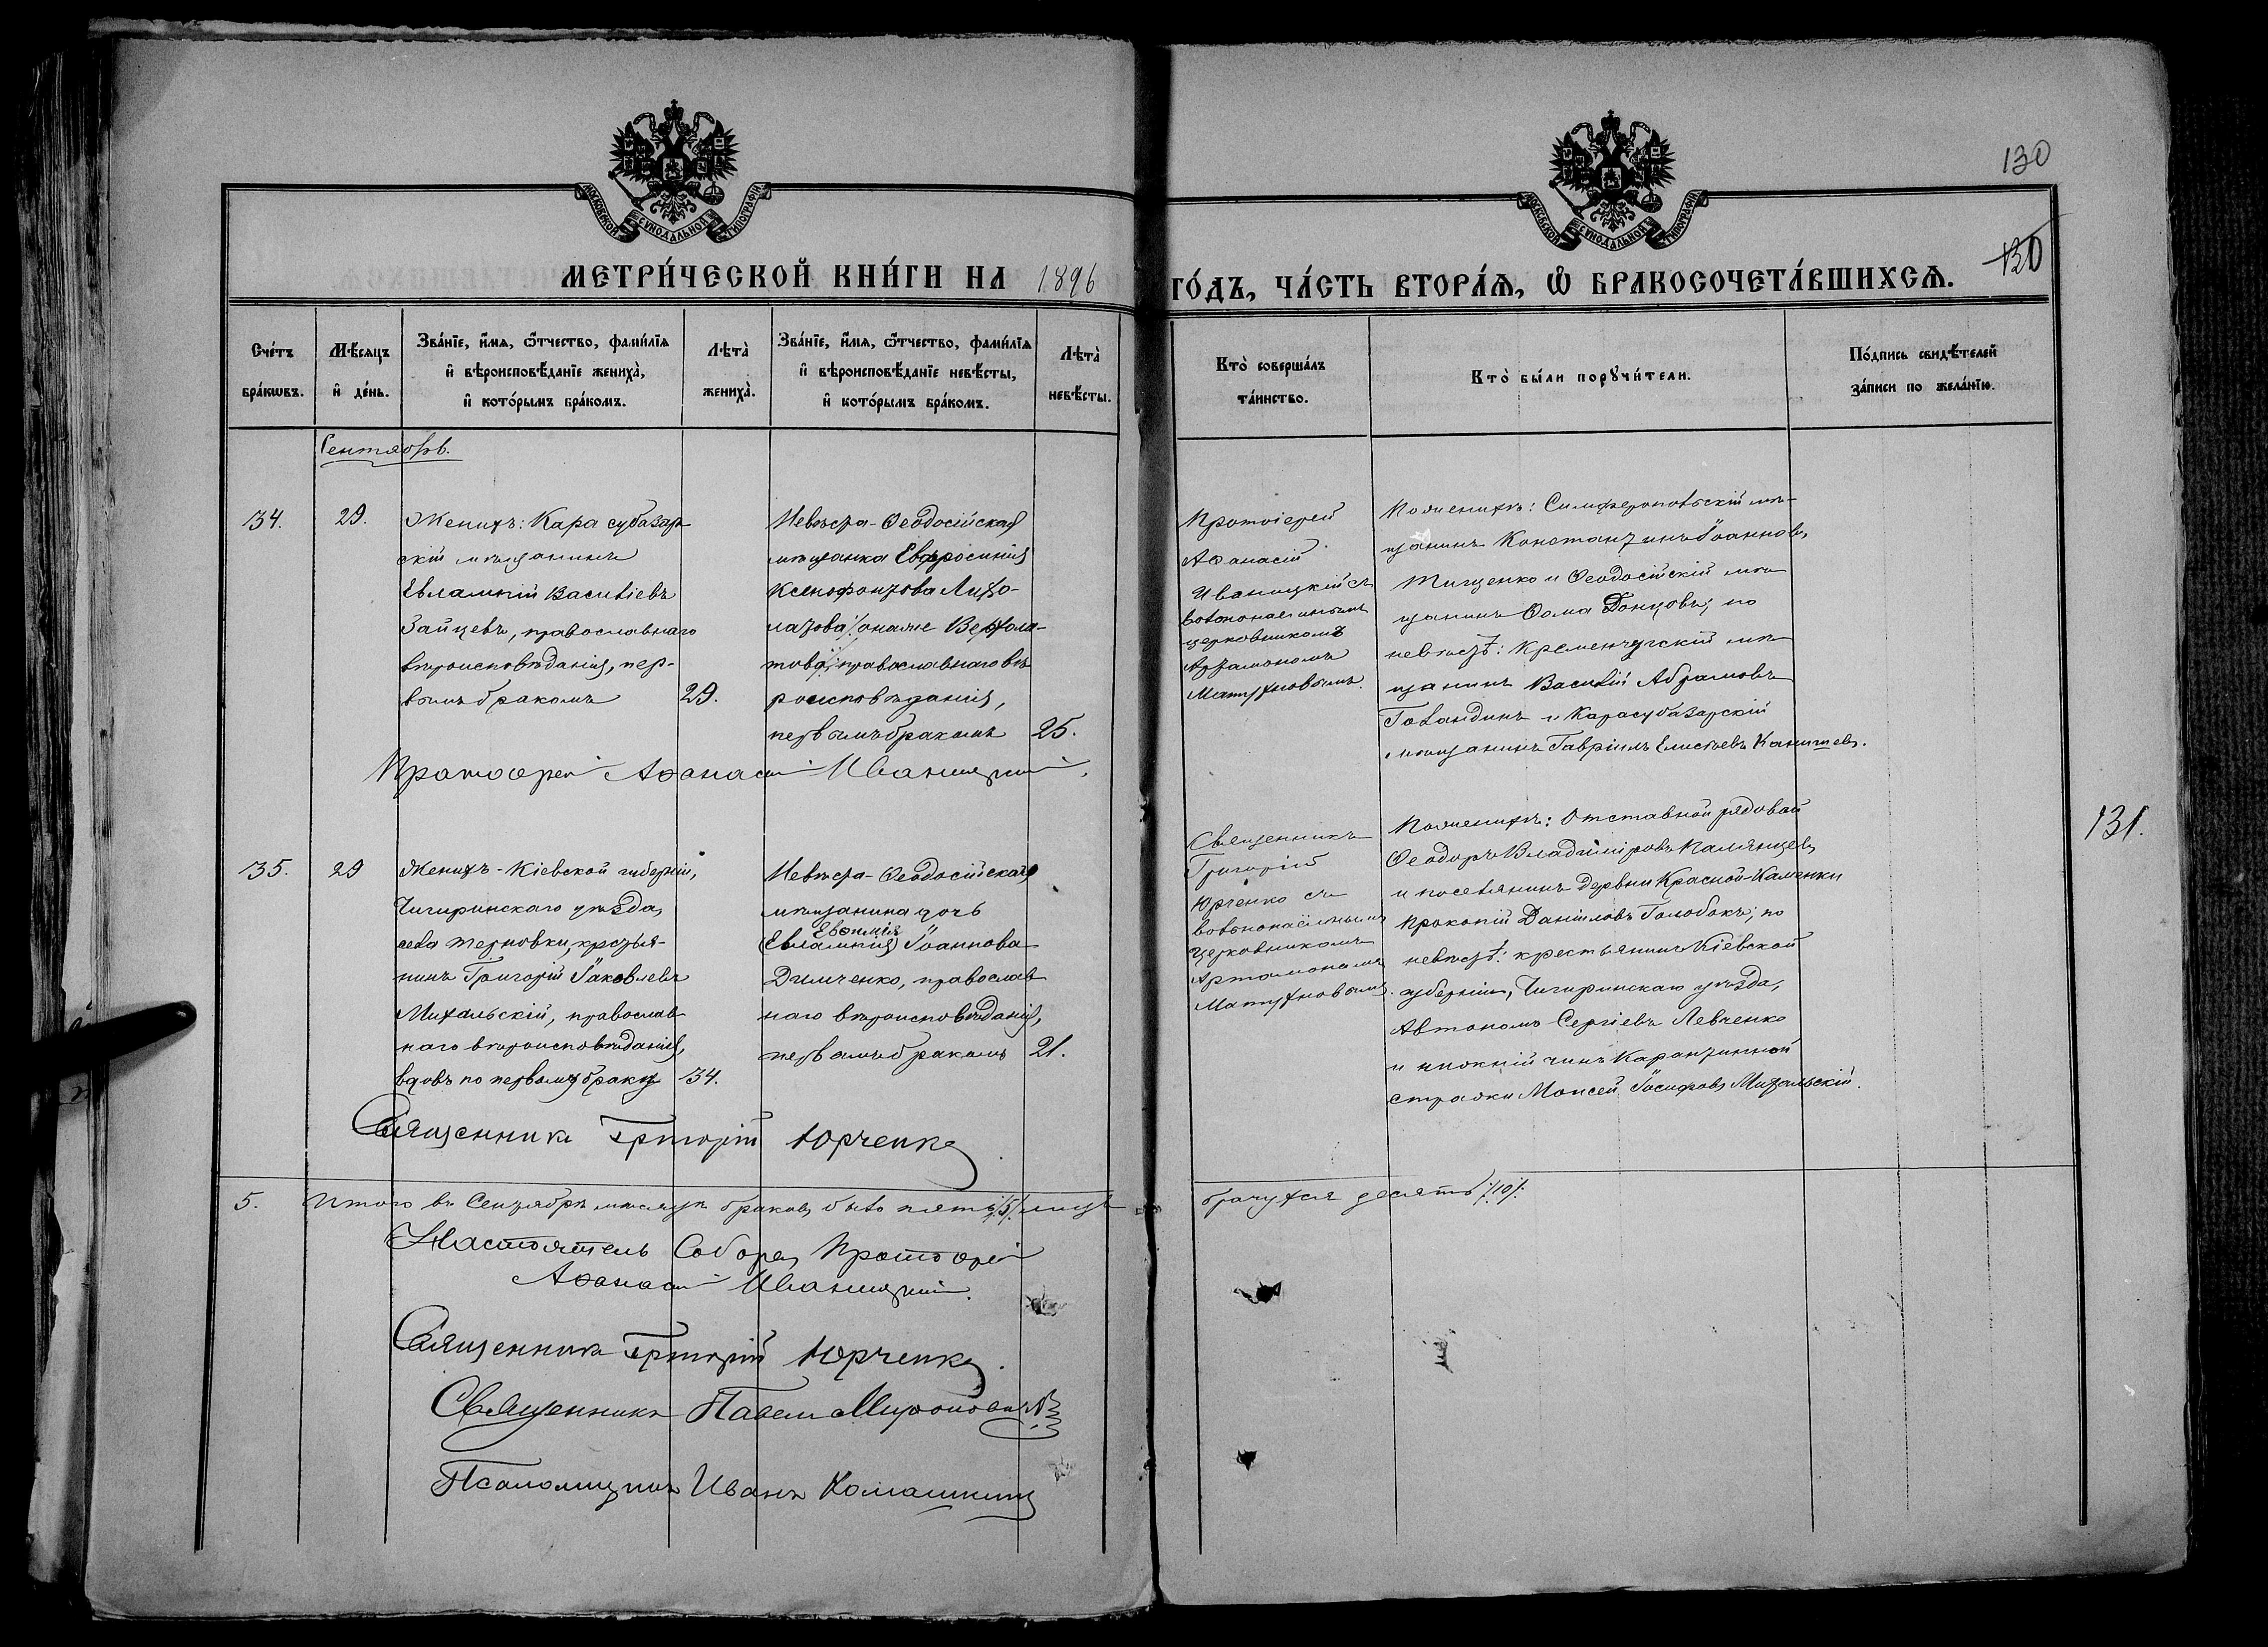 130
130
МОСКОВСКОЙ СУНОДАЛЬНОЙ ТИПОГРАФІИ
МОСКОВСКОЙ СУНОДАЛЬНОЙ ТИПОГРАФІИ
МЕТРИ́ЧЕСКОЙ КНИ́ГИ НА 1896 ГО́ДЪ, ЧА́СТЬ ВТОРА́Ѧ, Ѡ҆ БРАКОСОЧЕТА́ВШИХСѦ.
Сче́тъ
бра́кѡвъ.
Мѣ́сяцъ
и҆ де́нь.
Зва́нїе, и҆́мѧ, ѻ҆́тчество, фами́лїѧ
и҆ вѣроисповѣ́данїе жениха̀,
и҆ кото́рымъ бра́комъ.
Лѣта̀
жениха̀.
Зва́нїе, и҆́мѧ, ѻ҆́тчество, фами́лїѧ
и҆ вѣроисповѣ́данїе невѣ́сты,
и҆ кото́рымъ бра́комъ.
Лѣта̀
невѣ́сты.
Кто̀ соверша́лъ
та́инство.
Кто̀ бы́ли порꙋчи́тели.
По́дпись свидѣ́телей
за́писи по жела́нїю.
Сентябрь.
34.
29.
Женихъ: Карасубазар-
скій мѣщанинъ
Евлампій Василіевъ
Зайцевъ, православнаго
вѣроисповѣданія, пер-
вымъ бракомъ
29.
Невѣста - Ѳеодосійская
мѣщанка Евфросинія
Ксенофонтова Лифо-
лазова
православнаго вѣ-
роисповѣданія,
первымъ бракомъ
25.
Протоіерей
Аѳанасій
Иваницкій съ
вольнонаемнымъ
церковникомъ
Артамономъ
Матухновымъ.
По женихѣ: Симферопольскій мѣ-
щанинъ Константинъ Іоанновъ
Тищенко и Ѳеодосійскій мѣ-
щанинъ Ѳома Донцовъ; по
невѣстѣ: Кременчугскій мѣ-
щанинъ Василій Абрамовъ
Голандинъ и Карасубазарскій
мѣщанинъ Гавріилъ Елисѣевъ Канышевъ.
Протоіерей Аѳанасій Иваницкій.
35.
29
Женихъ - Кіевской губерніи,
Чигиринскаго уѣзда,
села Терновки, крестья-
нинъ Григорій Іаковлевъ
Михальскій, православ-
наго вѣроисповѣданія,
вдовъ по первому браку
34.
Невѣста - Ѳеодосійскаго
мѣщанина дочь
Евѳимія
Евлампія Іоаннова
Димченко, православ-
наго вѣроисповѣданія,
первымъ бракомъ
21.
Священникъ
Григорій
Юрченко съ
вольнонаёмнымъ
церковникомъ
Артамономъ
Матухновымъ.
По женихѣ: Отставной рядовой
Ѳеодоръ Владиміровъ Палянцевъ
и поселянинъ деревни Красной-Каменки
Прокопій Даніиловъ Голобокъ; по
невѣстѣ: крестьянинъ Кіевской
губерніи, Чигиринскаго уѣзда,
Автономъ Сергіевъ Левченко
и нижній чинъ Карантинной
стражи Моисей Іосифовъ Михальскій.
131.
Священникъ Григорій Юрченко.
5. Итого въ Сентябрѣ мѣсяцѣ браковъ было пять /5/. лицъ
брачущихся десять /10/.
Настоятель Собора, Протоіерей
Аѳанасій Иваницкій.
Священникъ Григорій Юрченко.
Священникъ Павелъ Мироновичъ
Псаломщикъ Иванъ Комашкинъ